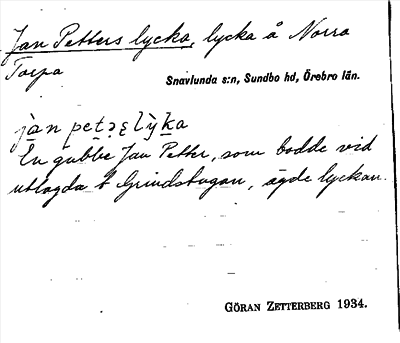 Jan Petters lycka, lycka å Norra
Torpa
Snavlunda s:n, Sundbo hd, Örebro län.
jàn petə̣ʂ lỳka
En gubbe Jan Petter, som bodde vid
utlagda t Grindstugan, ägde lyckan.
GÖRAN ZETTERBERG 1934.